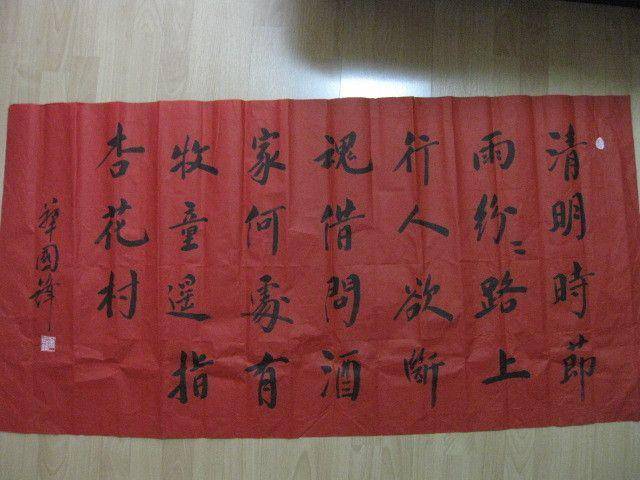 清明時節
雨紛〻路上
行人欲斷
魂借問酒
家何處有
牧童遥指
杏花村
華國鋒